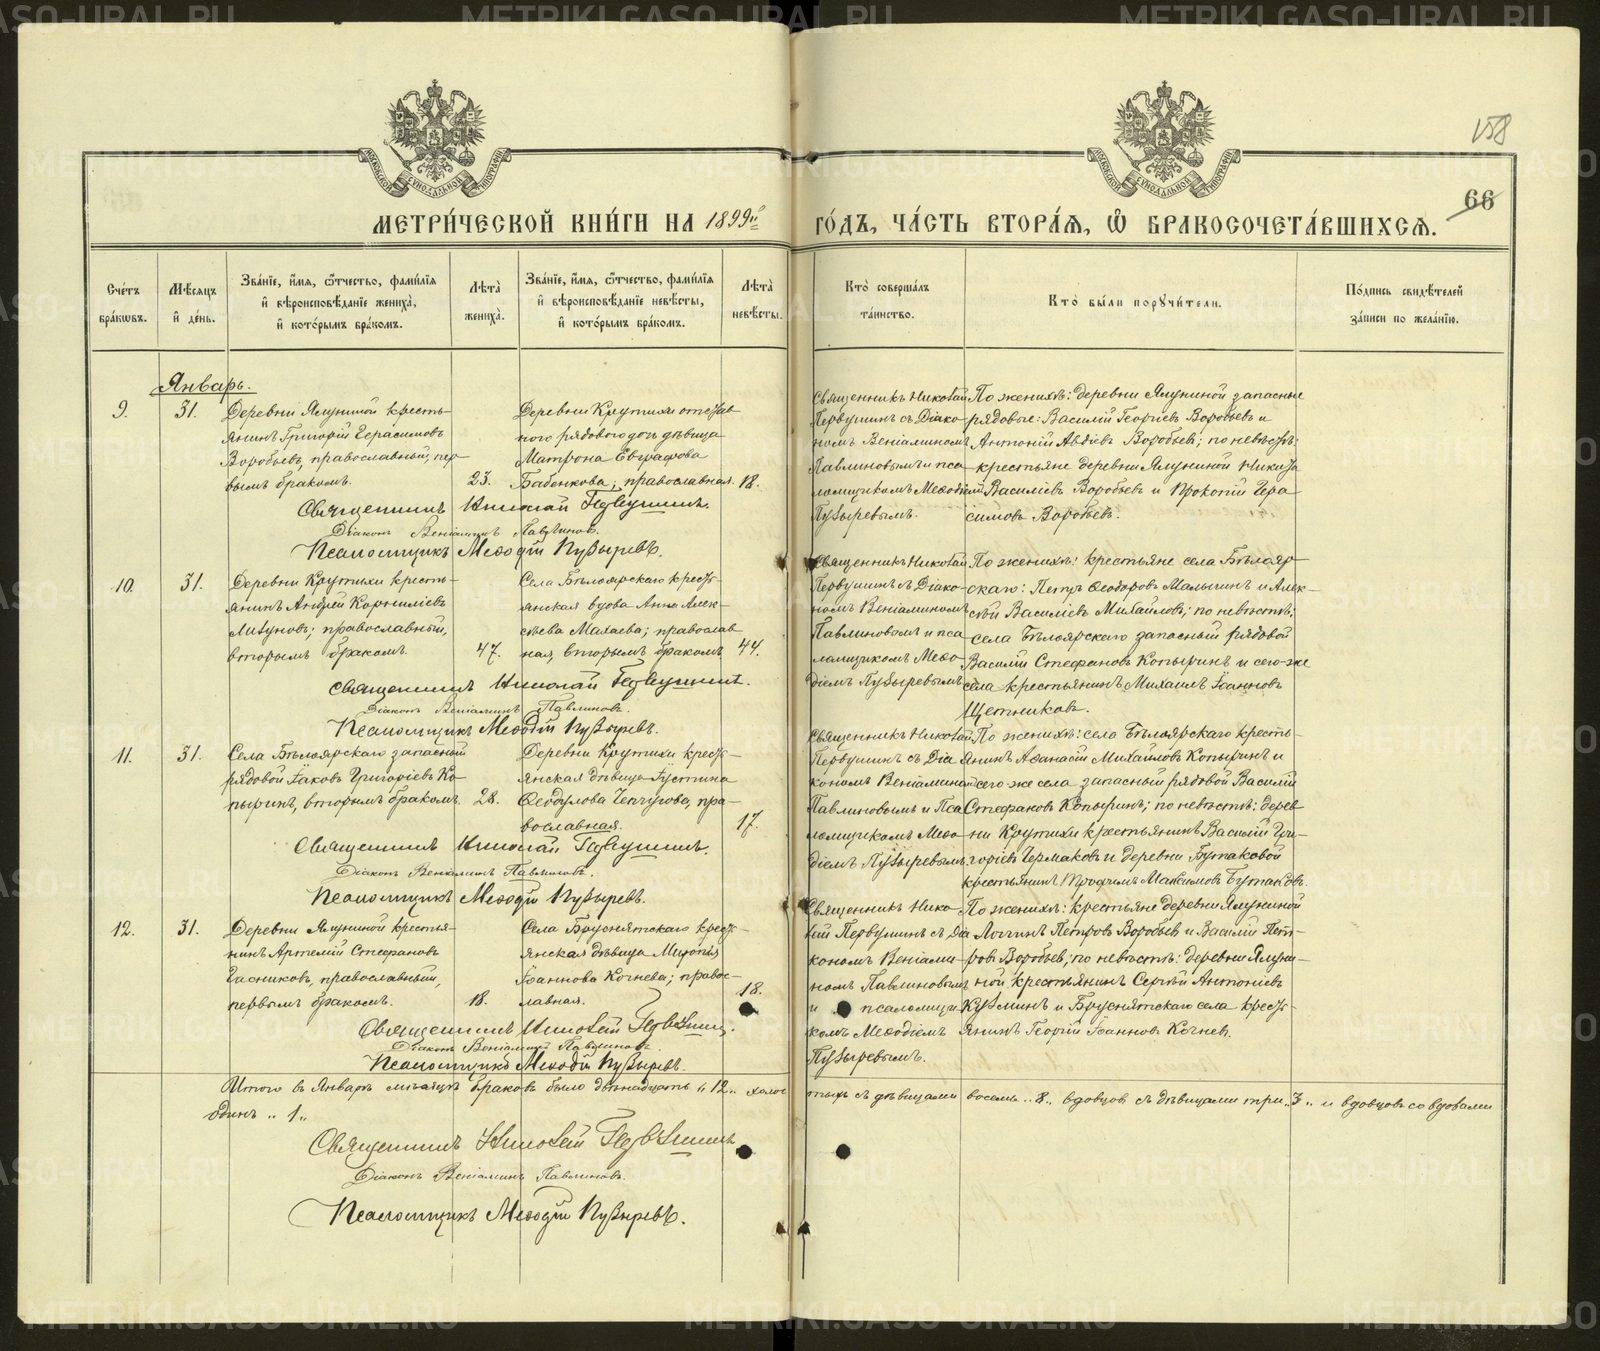 158
66
МЕТРИ́ЧЕСКОЙ КНИ́ГИ НА 1899й ГО́ДЪ, ЧА́СТЬ ВТОРА́Я, Ѡ҆ БРАКОСОЧЕТА́ВШИХСЯ.
Сче́тъ бра́кѡвъ.
Мѣ́сяцъ и҆ де́нь.
Зва́нїе, и҆́мя, ѻ҆́тчество, фами́лїя и҆ вѣроисповѣ́данїе жениха̀, и҆ кото́рымъ бра́комъ.
Лѣ́та̀ жениха̀.
Зва́нїе, и҆́мя, ѻ҆́тчество, фами́лїя и҆ вѣроисповѣ́данїе невѣ́сты, и҆ кото́рымъ бра́комъ.
Лѣ́та̀ невѣ́сты.
Кто̀ соверша́лъ та́инство.
Кто̀ бы́ли порꙋчи́тели.
По́дпись свидѣ́телей за́писи по жела́нїю.
Январь.
9.
31.
Деревни Ялуниной кресть-
янинъ Григорій Герасимовъ
Воробьевъ, православный, пер
вымъ бракомъ.
23.
Деревни Крутихи отстав
ного рядового дочь дѣвица
Матрона Евграфова
Бабенкова; православная.
18.
Священникъ Николай
Первушинъ съ Діако-
номъ Веніаминомъ
Павлиновымъ и пса
ломщикомъ Меѳодіемъ
Пузыревымъ.
По женихѣ: деревни Ялуниной запасные
рядовые: Василій Георгіевъ Воробьевъ и
Антоній Авдіевъ Воробьевъ; по невѣстѣ:
крестьяне деревни Ялуниной Никита
Василіевъ Воробьевъ и Прокопій Гера
симовъ Воробьевъ.
Священникъ Николай Первушинъ.
Діаконъ Веніаминъ Павлиновъ.
Псаломщикъ Меѳодій Пузыревъ.
10.
31.
Деревни Крутихи кресть-
янинъ Андрей Корниліевъ
Лизуновъ; православный,
вторымъ бракомъ.
47.
Села Бѣлоярскаго крест-
янская вдова Анна Алек-
сѣева Махаева; православ
ная, вторымъ бракомъ
44.
Священникъ Николай
Первушинъ съ Діако-
номъ Веніаминомъ
Павлиновымъ и пса
ломщикомъ Меѳо-
діемъ Пузыревымъ
По женихѣ: крестьяне села Бѣлояр-
скаго: Петръ Ѳеодоровъ Малышинъ и Алек-
сѣй Василіевъ Михайловъ; по невѣстѣ:
села Бѣлоярскаго запасный рядовой
Василій Стефановъ Копыринъ и сего-же
села крестьянинъ Михаилъ Іоанновъ
Щетниковъ.
Священникъ Николай Первушинъ.
Діаконъ Веніаминъ Павлиновъ.
Псаломщикъ Меѳодій Пузыревъ.
11.
31.
Села Бѣлоярскаго запасный
рядовой Іаковъ Григоріевъ Ко
пыринъ, вторымъ бракомъ.
28.
Деревни Крутихи крест-
янская дѣвица Іустина
Ѳеодулова Чепчугова, пра-
вославная.
17.
Священникъ Николай
Первушинъ съ Діа
кономъ Веніаминомъ
Павлиновымъ и Пса
ломщикомъ Меѳо-
діемъ Пузыревымъ.
По женихѣ: села Бѣлоярскаго кресть-
янинъ Аѳанасій Михайловъ Копыринъ и
сего же села запасный рядовой Василій
Стефановъ Копыринъ; по невѣстѣ: дерев
ни Крутихи крестьянинъ Василій Гри-
горіевъ Чермаковъ и деревни Бутаковой
крестьянинъ Трофимъ Максимовъ Бутаковъ.
Священникъ Николай Первушинъ.
Діаконъ Веніаминъ Павлиновъ.
Псаломщикъ Меѳодій Пузыревъ.
12.
31.
Деревни Ялуниной крестья-
нинъ Артемій Стефановъ
Чесноковъ, православный,
первымъ бракомъ.
18.
Села Бруснятскаго крест-
янская дѣвица Миропія
Іоаннова Кочнева; правос-
лавная.
18.
Священникъ Нико
лай Первушинъ съ Діа
кономъ Веніами-
номъ Павлиновымъ
и псаломщи-
комъ Меѳодіемъ
Пузыревымъ.
По женихѣ: крестьяне деревни Ялуниной
Логгинъ Петровъ Воробьевъ и Василій Пет-
ровъ Воробьевъ; по невѣстѣ: деревни Ялуни-
ной крестьянинъ Сергѣй Антоніевъ
Кузминъ и Бруснятскаго села крест-
янинъ Георгій Іоанновъ Кочневъ.
Священникъ Николай Первушинъ.
Діаконъ Веніаминъ Павлиновъ.
Псаломщикъ Меѳодій Пузыревъ.
Итого въ Январѣ мѣсяцѣ браковъ было двѣнадцать „12„ холос
тыхъ съ дѣвицами восемь „8„ вдовцовъ съ дѣвицами три „3„ и вдовцовъ со вдовами
одинъ „1„
Священникъ Николай Первушинъ
Діаконъ Веніаминъ Павлиновъ.
Псаломщикъ Меѳодій Пузыревъ.
METRIKI.GASO-URAL.RU